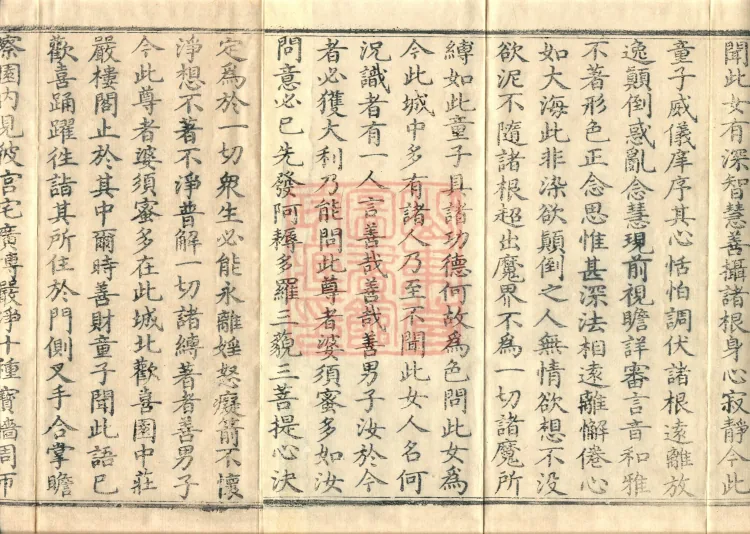 聞此女有深智慧善攝諸根身心寂靜今此
童子威儀庠序其心恬怕調伏諸根遠離放
逸顛倒惑亂念慧現前視瞻詳審言音和雅
不著形色正念思惟甚深法相遠離懈倦心
如大海此非染欲顛倒之人無情欲想不没
欲泥不隨諸根超出魔界不為一切諸魔所
縛如此童子具諸功德何故為色問此女為
今此城中多有諸人乃至不聞此女人名何
況識者有一人言善哉善哉善男子汝於今
者必獲大利乃能問此尊者婆須蜜多如汝
問意必已先發阿耨多羅三藐三菩提心決
定為於一切衆生必能永離婬怒癡箭不懷
淨想不著不淨普解一切諸縛著者善男子
今此尊者婆須蜜多在此城北歡喜園中莊
嚴樓閣止於其中爾時善財童子聞此語已
歡喜踊躍往詣其所住於門側叉手合掌瞻
察園内見彼宮宅廣博嚴淨十種寶牆周帀